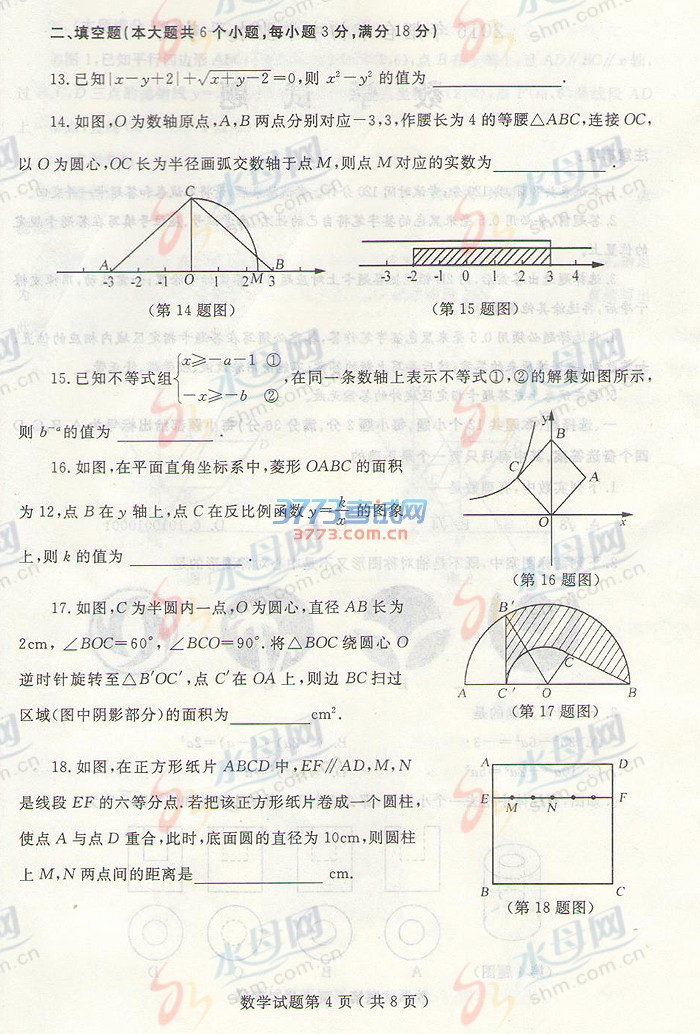 二、填空题(本大题共6个小题,每小题3分,满分18分)
13.已知|x-y+2|+√(x+y-2)=0,则 x²-y² 的值为________.
14.如图,O为数轴原点,A,B两点分别对应-3,3,作腰长为4的等腰△ABC,连接OC,
以O为圆心,OC长为半径画弧交数轴于点M,则点M对应的实数为________.
C
A O M B
-3 -2 -1 0 1 2 3
(第14题图)
-3 -2 -1 0 1 2 3 4
(第15题图)
15.已知不等式组{x≥-a-1 ①
-x≥-b ②
,在同一条数轴上表示不等式①,②的解集如图所示,
则b⁻ᵃ的值为________.
16.如图,在平面直角坐标系中,菱形OABC的面积
为12,点B在y轴上,点C在反比例函数y=k/x的图象
上,则k的值为________.
y
B
C
A
O x
(第16题图)
17.如图,C为半圆内一点,O为圆心,直径AB长为
2cm,∠BOC=60°,∠BCO=90°.将△BOC绕圆心O
逆时针旋转至△B′OC′,点C′在OA上,则边BC扫过
区域(图中阴影部分)的面积为________cm².
B′
C
A C′ O B
(第17题图)
18.如图,在正方形纸片ABCD中,EF∥AD,M,N
是线段EF的六等分点.若把该正方形纸片卷成一个圆柱,
使点A与点D重合,此时,底面圆的直径为10cm,则圆柱
上M,N两点间的距离是________cm.
A D
E M N F
B C
(第18题图)
数学试题第4页(共8页)
3773考试网
3773.com.cn
水母网
shm.com.cn